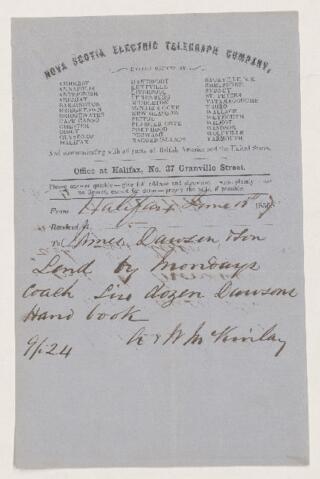 NOVA SCOTIA ELECTRIC TELEGRAPH COMPANY,
AMHERST
ANNAPOLIS
ANTIGONISH
BARRINGTON
BRIDGETOWN
BRIDGEWATER
CAPE CANSO
CHESTER
DIGBY
GUYSBORO
HALIFAX
KENTVILLE
LIVERPOOL
LUNENBURG
MIDDLETON
NEW GLASGOW
PICTOU
PLAISTER COVE
PORT HOOD
RAGGED ISLANDS
SACKVILLE, N.B.
SHELBURNE
SYDNEY
ST. PETERS
TATAMAGOUCHE
TRURO
WALLACE
WEYMOUTH
WILMOT
WINDSOR
WOLFVILLE
YARMOUTH
And communicating with all parts of British America and the United States.
Office at Halifax, No. 37 Granville Street.
From Halifax June 185
Received at
To James Dawson & Son
Send by Mondays
Coach Six dozen Dawsons
Hand book
A & W McKinlay
9/1.24